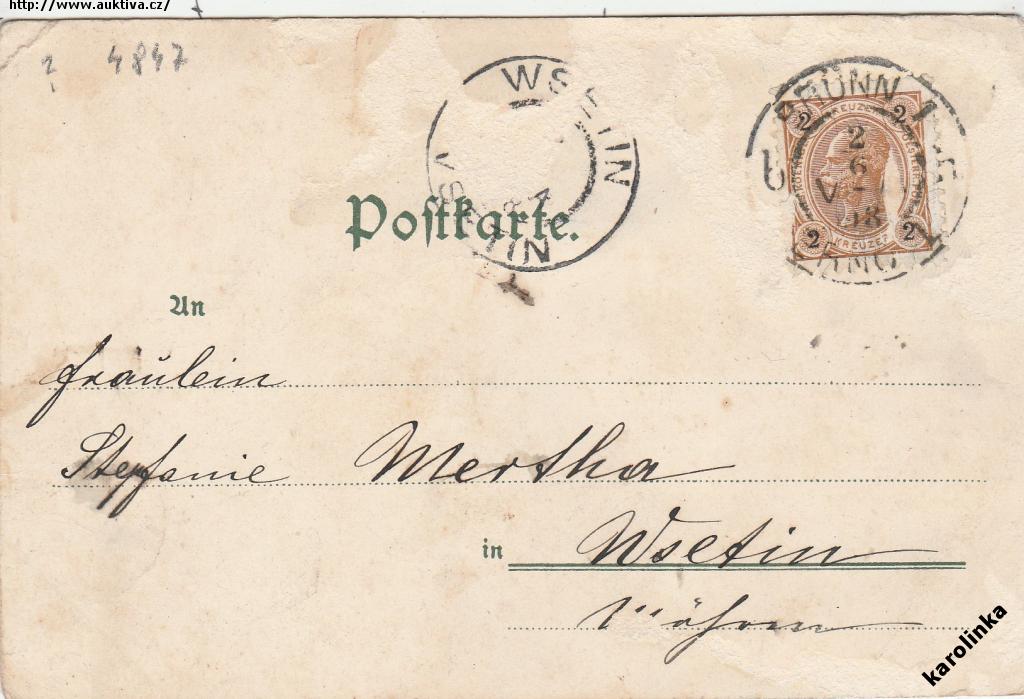 http://www.auktiva.cz/
? 4847
WSETIN
WSETIN
BRÜNN 1
2
6
V
98
b
2 KREUZER 2
2 KREUZER 2
Postkarte.
An
Fräulein
Stepfanie Mertha
in Wsetin
Mähren
karolinka